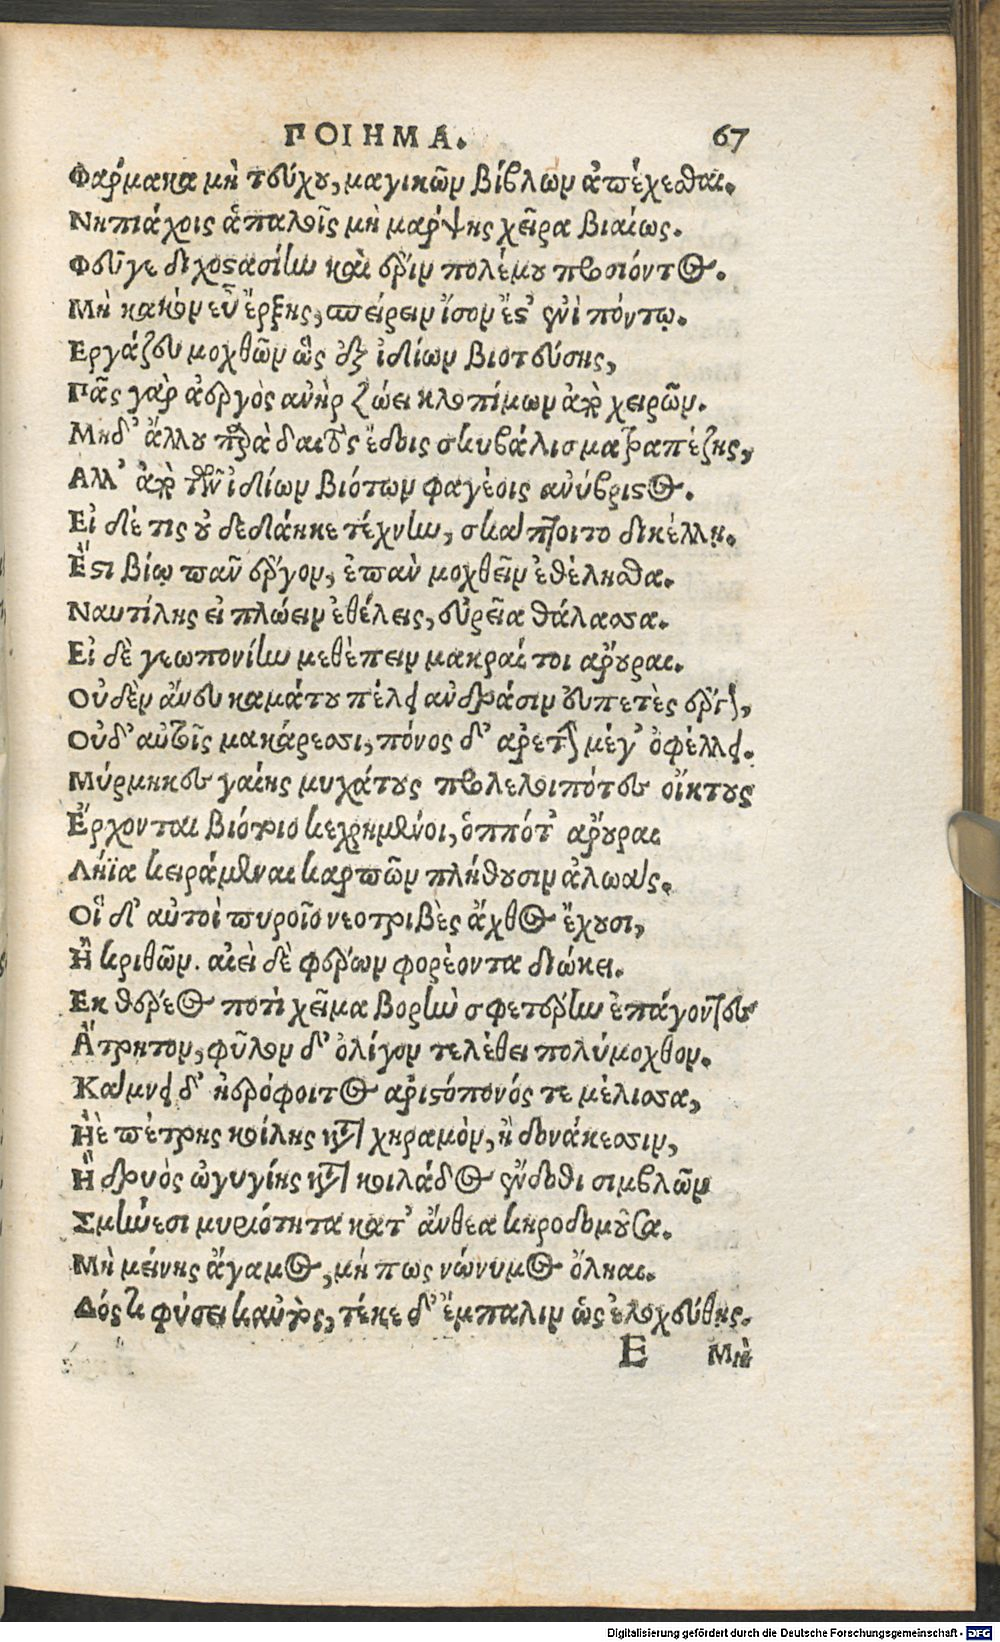 ΠΟΙΗΜΑ. 67
Φάρμακα μὴ τεύχου, μαγικῶν βίβλων ἀπέχεσθαι.
Νηπιάχοις ἁπαλοῖς μὴ μάρψῃς χεῖρα βιαίως.
Φεῦγε διχοστασίην καὶ ἔριν πολέμου προσιόντος.
Μὴ κακὸν εὖ ἔρξῃς, σπείρειν ἴσον ἔστ' ἐνὶ πόντῳ.
Εργάζευ μοχθῶν ὡς ἐξ ἰδίων βιοτεύσῃς,
Πᾶς γὰρ ἀεργὸς ἀνὴρ ζώει κλοπίμων ἀπὸ χειρῶν.
Μηδ' ἄλλου παρὰ δαιτὸς ἔδοις σκυβάλισμα τραπέζης,
Αλλ' ἀπὸ τῶν ἰδίων βιότων φαγέοις ἀνύβριστος.
Εἰ δέ τις οὐ δεδάηκε τέχνην, σκάπτοιτο δικέλλῃ.
Ἔστι βίῳ πᾶν ἔργον, ἐπὰν μοχθεῖν ἐθέλησθα.
Ναυτίλης εἰ πλώειν ἐθέλεις, εὐρεῖα θάλασσα.
Εἰ δὲ γεωπονίην μεθέπειν μακραί τοι ἄρουραι.
Οὐδὲν ἄνευ καμάτου πέλει ἀνδράσιν εὐπετὲς ἔργον,
Οὐδ' αὐτοῖς μακάρεσσι, πόνος δ' ἀρετὴν μέγ' ὀφέλλει.
Μύρμηκες γαίης μυχάτους προλελοιπότες οἴκους
Ἔρχονται βιότοιο κεχρημένοι, ὁππότ' ἄρουραι
Λήϊα κειράμεναι καρπῶν πλήθουσιν ἀλωάς.
Οἳ δ' αὐτοὶ πυροῖο νεοτριβὲς ἄχθος ἔχουσι,
Ἢ κριθῶν. αἰεὶ δὲ φέρων φορέοντα διώκει.
Εκ θέρεος ποτὶ χεῖμα βορὴν σφετέρην ἐπάγοντες
Ἄτρητον, φῦλον δ' ὀλίγον τελέθει πολύμοχθον.
Κάμνει δ' ἠερόφοιτος ἀριστόπονός τε μέλισσα,
Ἠὲ πέτρης κοίλης κατὰ χηραμὸν, ἢ δονάκεσσιν,
Ἢ δρυὸς ὠγυγίης κατὰ κοιλάδος ἔνδοθι σίμβλων
Σμήνεσι μυριότρητα κατ' ἄνθεα κηροδομοῦσα.
Μὴ μείνῃς ἄγαμος, μή πως νώνυμος ὄληαι.
Δός τι φύσει καὐτὸς, τέκε δ' ἔμπαλιν ὡς ἐλοχεύθης.
E Μὴ
Digitalisierung gefördert durch die Deutsche Forschungsgemeinschaft - DFG